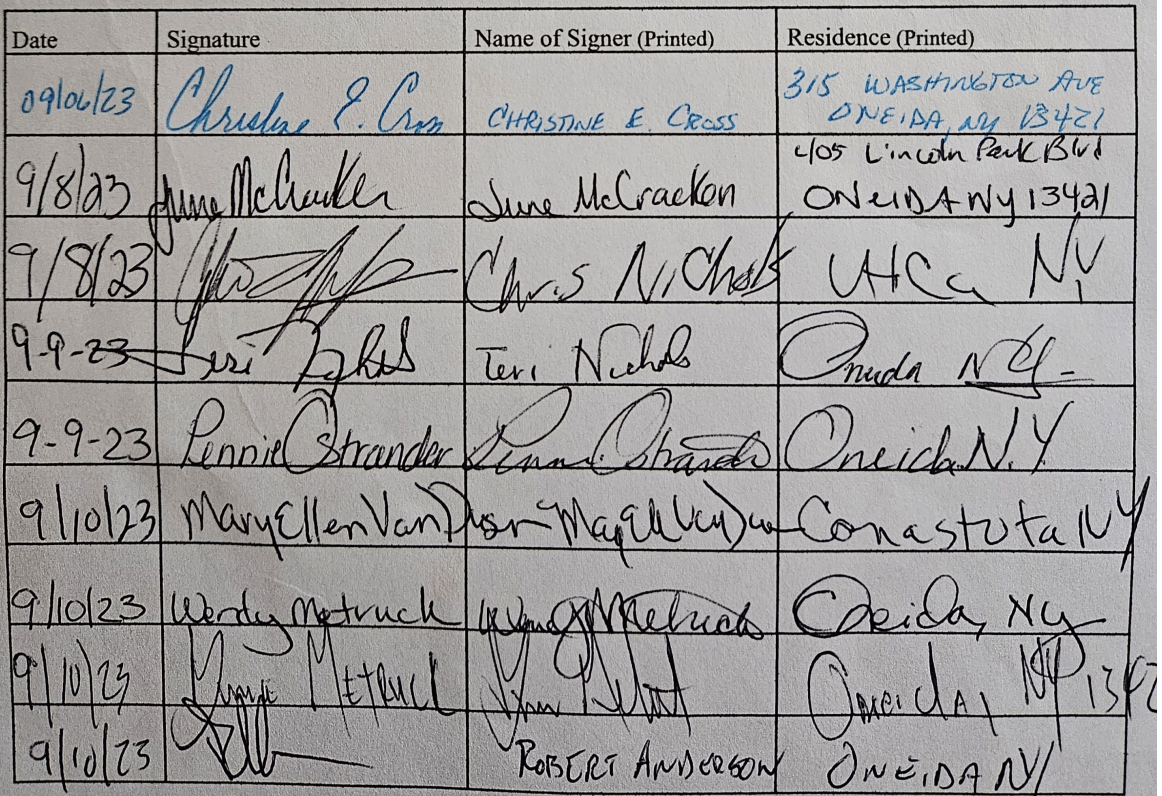 Date Signature Name of Signer (Printed) Residence (Printed)
09/06/23 Christine E. Cross CHRISTINE E. CROSS 315 WASHINGTON AVE
ONEIDA, NY 13421
9/8/23 June McCracken June McCracken 405 Lincoln Park Blvd
ONEIDA NY 13421
9/8/23 Chris Nichols Utica NY
9-9-23 Teri Nichols Oneida NY
9-9-23 Pennie Ostrander Pennie Ostrander Oneida N.Y.
9/10/23 MaryEllen Van Conastota NY
9/10/23 Wendy Metruck Wendy Metruck Oneida, NY
9/10/23 Metruck Oneida, NY
9/10/23 ROBERT ANDERSON ONEIDA NY